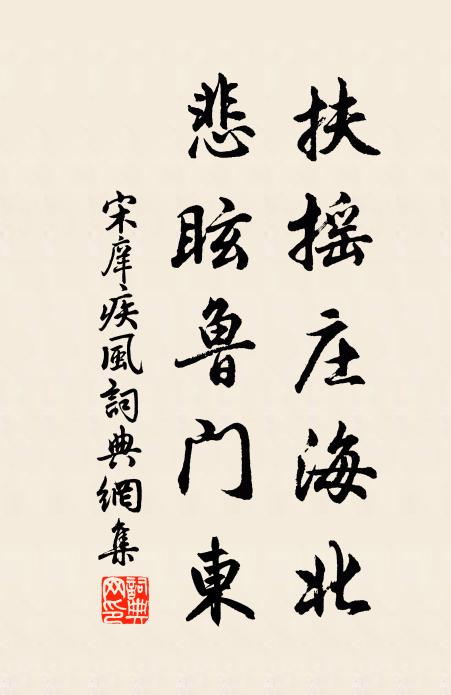 扶摇庄海北
悲眩魯门東
宋庠疾風詞典網集
詞典网印